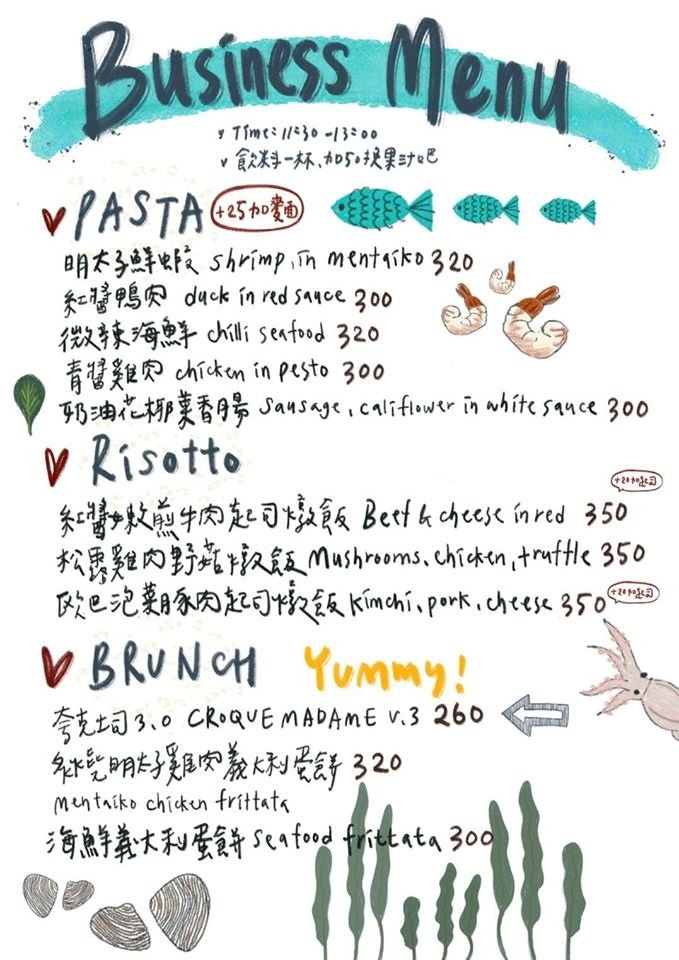 Business Menu
v Time: 11:30 - 13:00
v 飲料一杯、加50換果汁吧
PASTA +25加麵
明太子鮮蝦 shrimp, in mentaiko 320
紅醬鴨肉 duck in red sauce 300
微辣海鮮 chilli seafood 320
青醬雞肉 chicken in pesto 300
奶油花椰菜香腸 Sausage, califlower in white sauce 300
Risotto
+20加起司
紅醬嫩煎牛肉起司燉飯 Beef & cheese in red 350
松露雞肉野菇燉飯 Mushrooms, chicken, truffle 350
歐巴泡菜豚肉起司燉飯 kimchi, pork, cheese 350 +20加起司
BRUNCH Yummy!
夸克土司3.0 CROQUE MADAME V.3 260
明太子雞肉義大利蛋餅 320
mentaiko chicken frittata
海鮮義大利蛋餅 seafood frittata 300